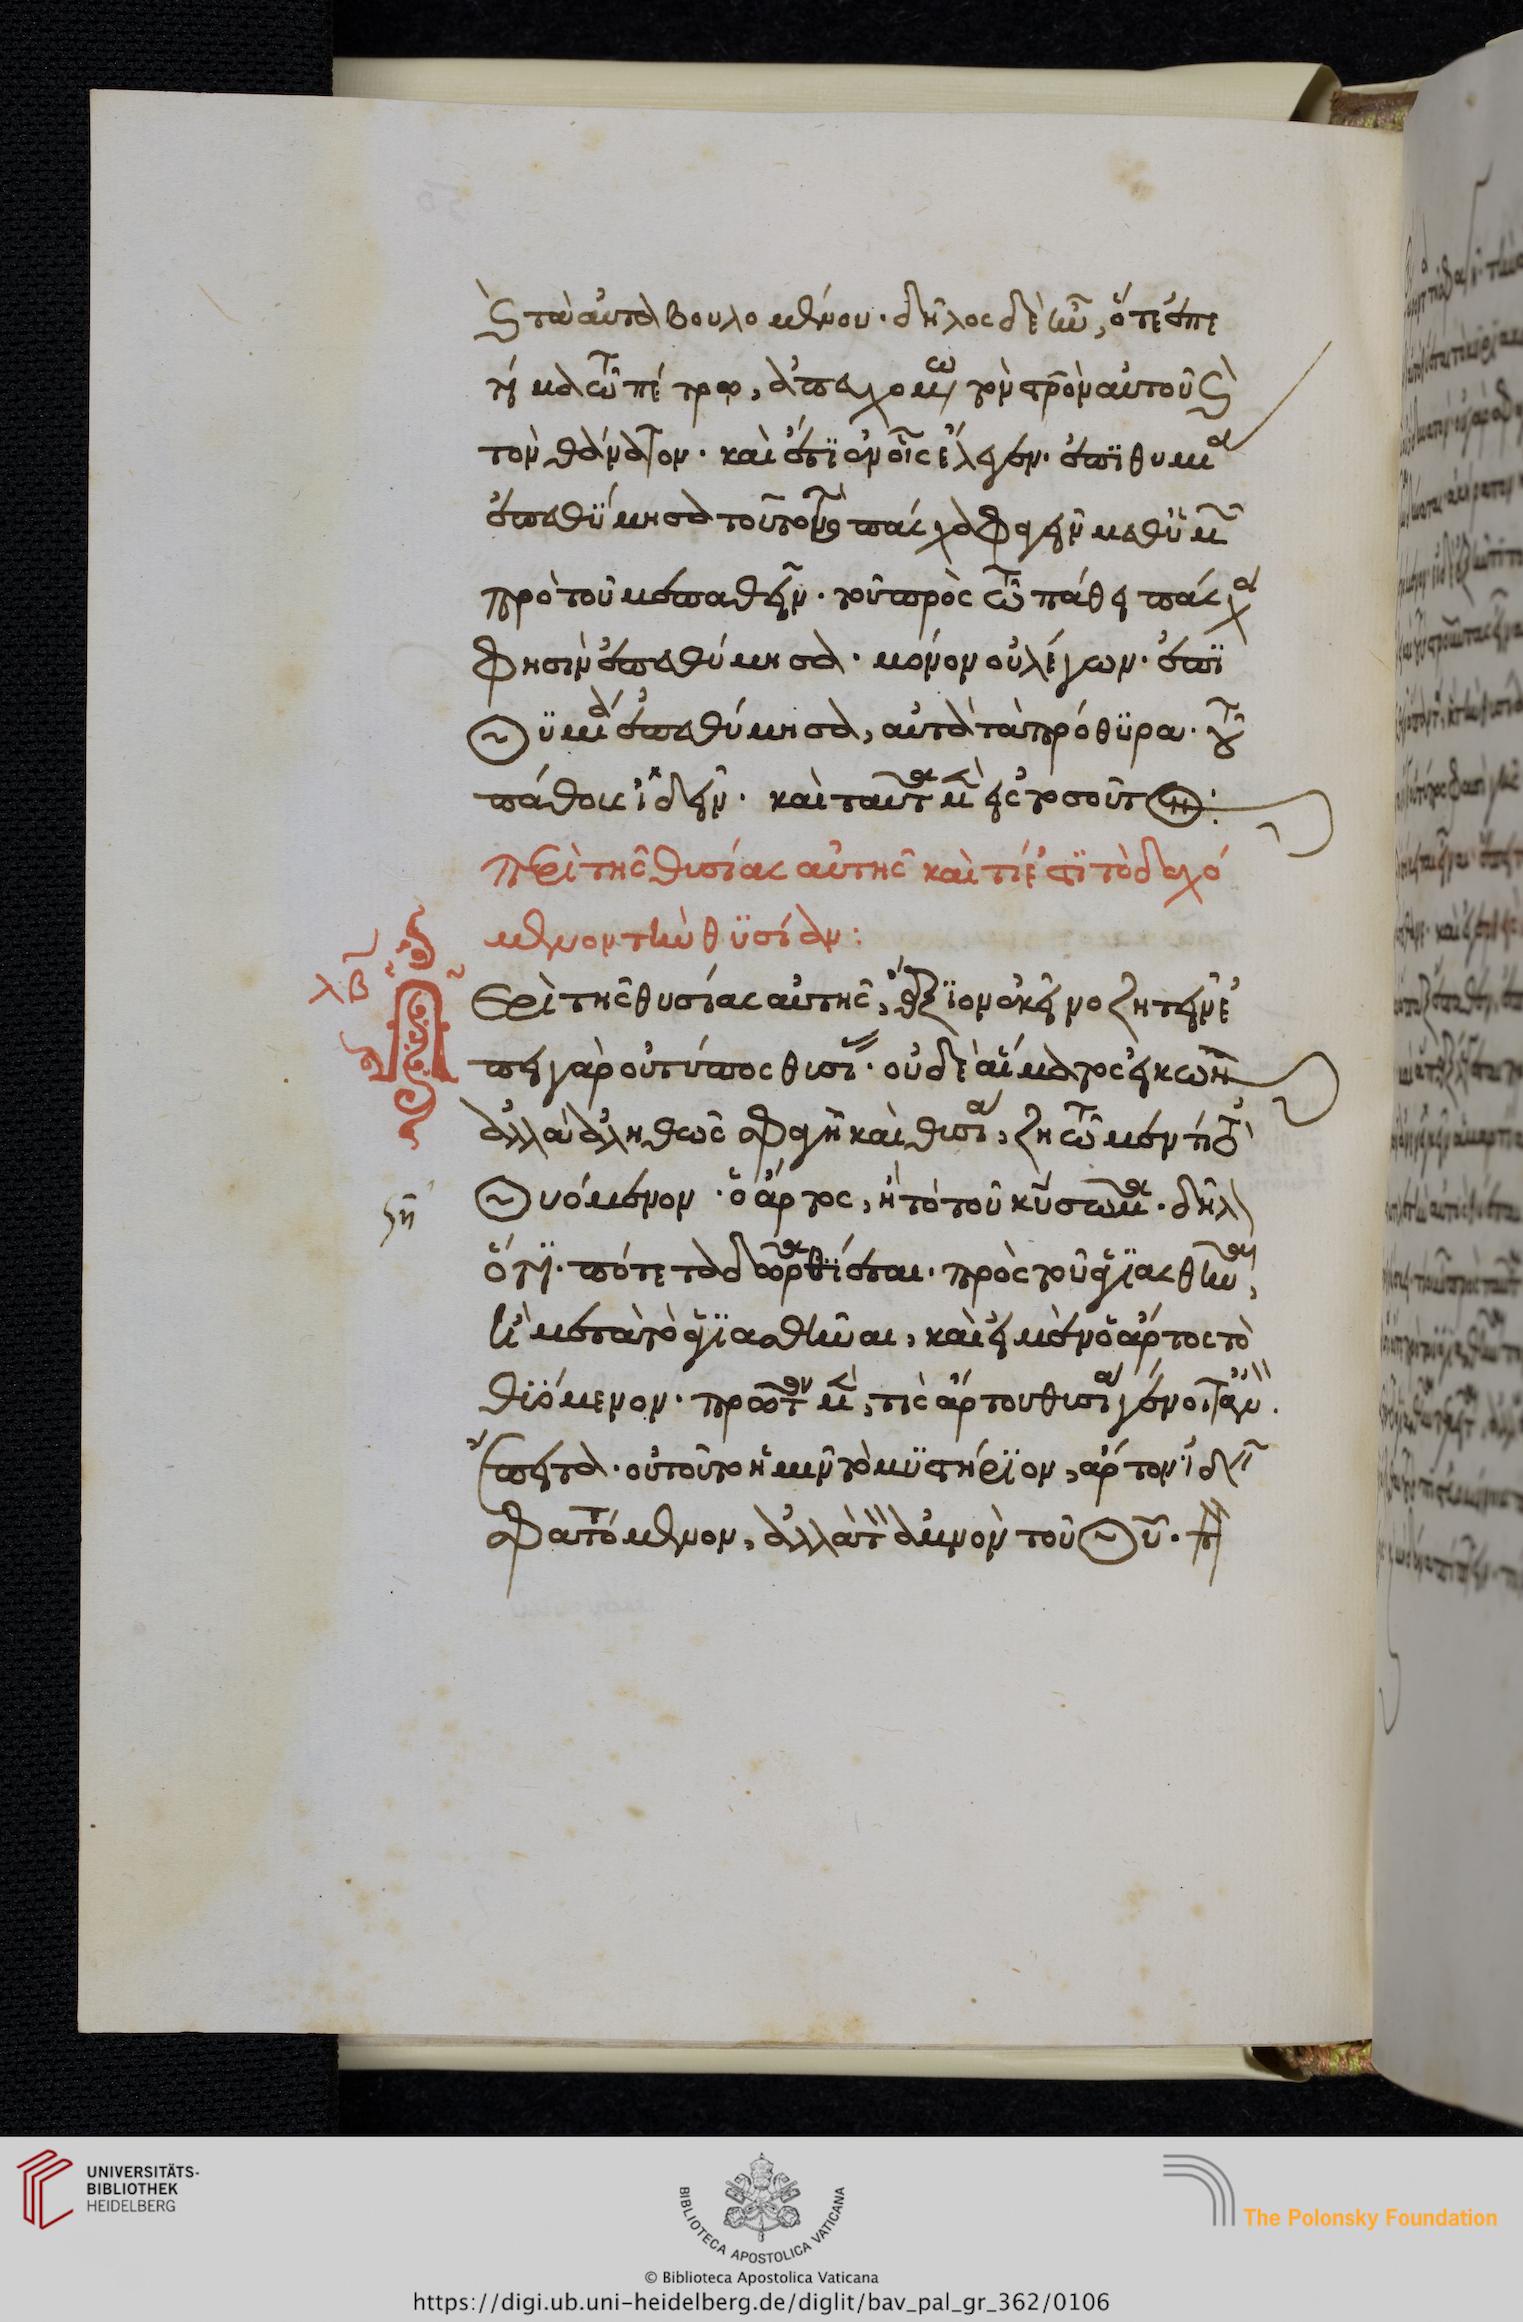 καὶ ταῦτα βουλομένου· δῆλος δὲ ἦν, ὅτε ἐπε
τίμα τῷ πέτρῳ, ἀπευχομένῳ τὸν σταυρὸν αὐτοῦ καὶ
τὸν θάνατον· καὶ ἔτι ἐν οἷς ἔλεγεν· ἐπϊθυμία
ἐπεθύμησα τοῦτο τὸ πάσχα φαγεῖν μεθ' ὑμῶν
πρὸ τοῦ με παθεῖν· τὸ πρὸς τῷ πάθει πάσχα
φησὶν ἐπεθύμησα· μόνον οὐ λέγων· ἐπϊ
θυμία ἐπεθύμησα, αὐτὰ τὰ πρόθυρα· τοῦ
πάθους ἰδεῖν· καὶ ταῦτα μὲν εἰς τοσοῦτον:
Περὶ τῆς θυσίας αὐτῆς καὶ τί ἐστϊ τὸ δεχό
μενον τὴν θϋσίαν:
λβ
Περὶ τῆς θυσίας αὐτῆς, ἄξϊον ἐκεῖνο ζητεῖν ἐ
πεὶ γὰρ οὐ τύπος θυσίας· οὐδὲ αἵματος εἰκὼν
ἀλλὰ ἀληθῶς σφαγὴ καὶ θυσία, ζητῶμεν τί τὸ
θυόμενον· ὁ ἄρτος, ἢ τὸ τοῦ χυ σῶμα· δηλ
ὅτϊ· πότε τὰ δῶρα θϋεται· πρὸ τοῦ ἁγϊασθῆναι,
ἢ μετὰ τὸ ἁγϊασθῆναι, καὶ εἰ μὲν ὁ ἄρτος τὸ
θϋόμενον· πρῶτον μὲν, τίς ἄρτου θυσία γένοιτ' ἄν·
ἔπειτα· οὐ τοῦτο ἡμῖν τὸ μϋστήρϊον, ἄρτον ἰδεῖν
σφαττόμενον, ἀλλὰ τὸν ἀμνὸν τοῦ θυ·
UNIVERSITÄTS-
BIBLIOTHEK
HEIDELBERG
BIBLIOTECA APOSTOLICA VATICANA
The Polonsky Foundation
© Biblioteca Apostolica Vaticana
https://digi.ub.uni-heidelberg.de/diglit/bav_pal_gr_362/0106